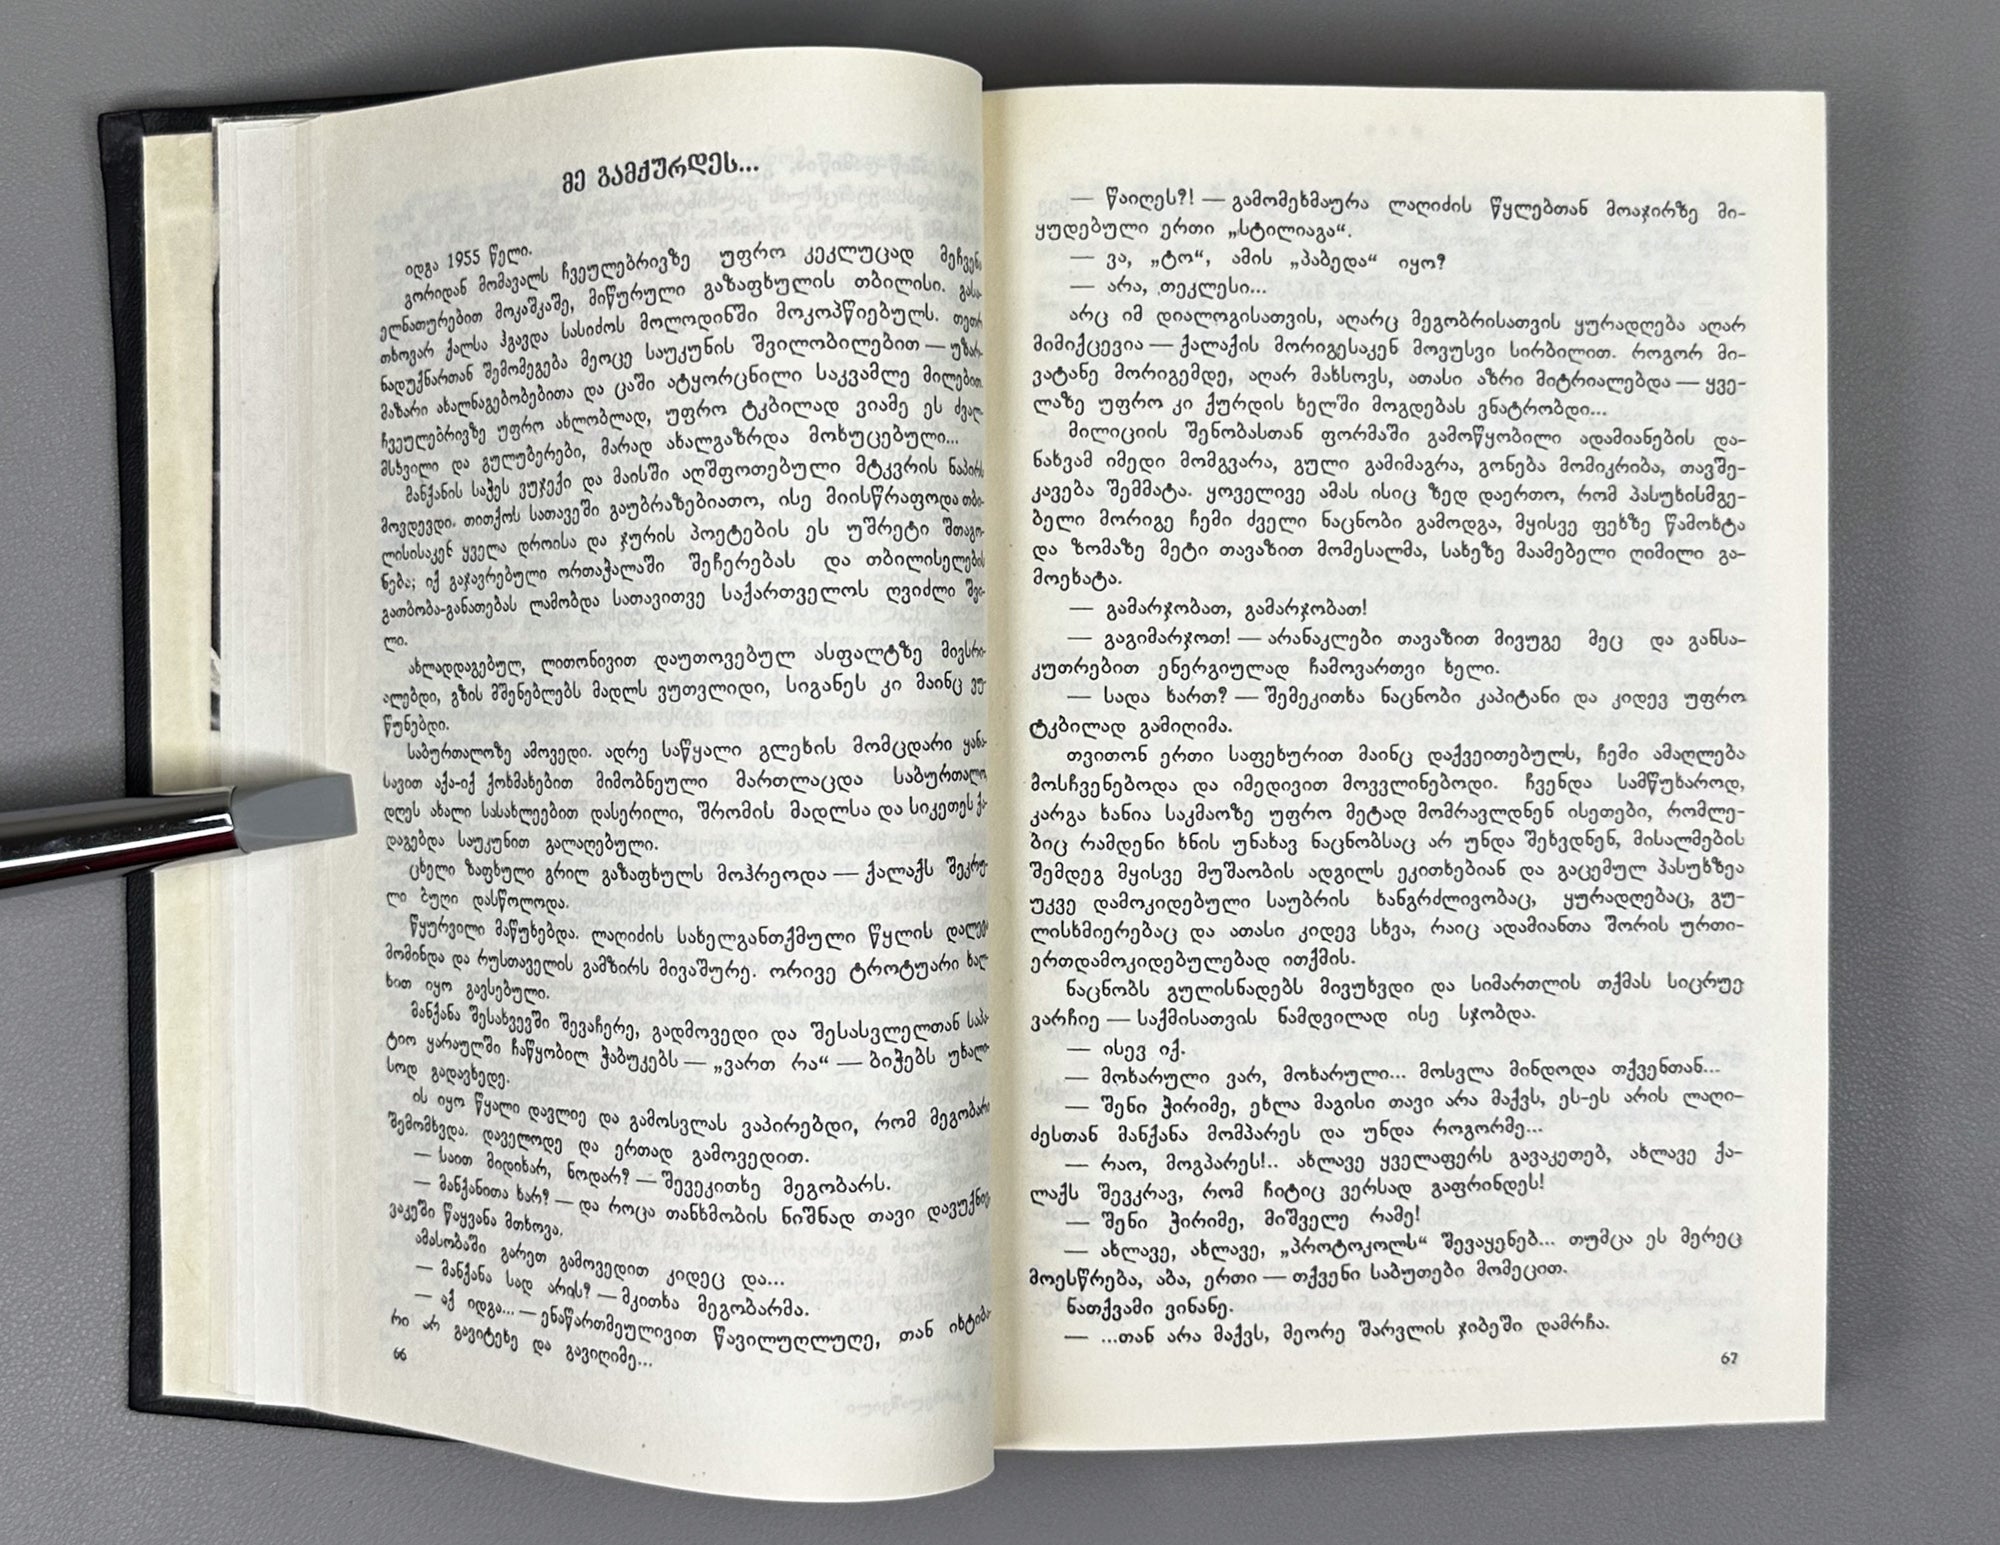 მე გამქურდეს...
იდგა 1955 წელი.
გორიდან მომავალს ჩვეულებრივზე უფრო კეკლუცად მეჩვენა
ელნათურებით მოკაშკაშე, მიწურული გაზაფხულის თბილისი. გასა-
თხოვარ ქალსა ჰგავდა სასიძოს მოლოდინში მოკოპწიებულს. თეთრ
ნადუქნართან შემომეგება მეოცე საუკუნის შვილობილებით — უზარ-
მაზარი ახალნაგებობებითა და ცაში ატყორცნილი საკვამლე მილებით.
ჩვეულებრივზე უფრო ახლობლად, უფრო ტკბილად ვიამე ეს ძვალ-
მსხვილი და გულუბერები, მარად ახალგაზრდა მოხუცებული...
მანქანის საჭეს ვუჯექი და მაისში აღშფოთებული მტკვრის ნაპირს
მოვდევდი. თითქოს სათავეში გაუბრაზებიათო, ისე მიისწრაფოდა თბი-
ლისისაკენ ყველა დროისა და ჯურის პოეტების ეს უშრეტი შთაგო-
ნება; იქ გაჯავრებული ორთაჭალაში შეჩერებას და თბილისელების
გათბობა-განათებას ლამობდა სათავითვე საქართველოს ღვიძლი შვი-
ლი.
ახლადდაგებულ, ლითონივით დაუთოვებულ ასფალტზე მივსრი-
ალებდი, გზის მშენებლებს მადლს ვუთვლიდი, სიგანეს კი მაინც ვუ-
წუნებდი.
საბურთალოზე ამოვედი. ადრე საწყალი გლეხის მომცდარი ყანა-
სავით აქა-იქ ქოხმახებით მიმობნეული მართლაცდა საბურთალო
დღეს ახალი სასახლეებით დასერილი, შრომის მადლსა და სიკეთეს ქა-
დაგებდა საუკუნით გალაღებული.
ცხელი ზაფხული გრილ გაზაფხულს მოჰრეოდა — ქალაქს შეკრუ-
ლი ბუღი დასწოლოდა.
წყურვილი მაწუხებდა. ლაღიძის სახელგანთქმული წყლის დალევა
მომინდა და რუსთაველის გამზირს მივაშურე. ორივე ტროტუარი ხალ-
ხით იყო გავსებული.
მანქანა შესახვევში შევაჩერე, გადმოვედი და შესასვლელთან საპა-
ტიო ყარაულში ჩაწყობილ ჭაბუკებს — „ვართ რა“ — ბიჭებს უხალი-
სოდ გადავხედე.
ის იყო წყალი დავლიე და გამოსვლას ვაპირებდი, რომ მეგობარი
შემომხვდა. დაველოდე და ერთად გამოვედით.
— საით მიდიხარ, ნოდარ? — შევეკითხე მეგობარს.
— მანქანითა ხარ? — და როცა თანხმობის ნიშნად თავი დავუქნიე
ვაკეში წაყვანა მთხოვა.
ამასობაში გარეთ გამოვედით კიდეც და...
— მანქანა სად არის? — მკითხა მეგობარმა.
— აქ იდგა... — ენაწართმეულივით წავილუღლუღე, თან იხტიბა-
რი არ გავიტეხე და გავიღიმე...
66
— წაიღეს?! — გამომეხმაურა ლაღიძის წყლებთან მოაჯირზე მი-
ყუდებული ერთი „სტილიაგა“.
— ვა, „ტო“, ამის „პაბედა“ იყო?
— არა, თეკლესი...
არც იმ დიალოგისათვის, აღარც მეგობრისათვის ყურადღება აღარ
მიმიქცევია — ქალაქის მორიგესაკენ მოვუსვი სირბილით. როგორ მი-
ვატანე მორიგემდე, აღარ მახსოვს, ათასი აზრი მიტრიალებდა — ყვე-
ლაზე უფრო კი ქურდის ხელში მოგდებას ვნატრობდი...
მილიციის შენობასთან ფორმაში გამოწყობილი ადამიანების და-
ნახვამ იმედი მომგვარა, გული გამიმაგრა, გონება მომიკრიბა, თავშე-
კავება შემმატა. ყოველივე ამას ისიც ზედ დაერთო, რომ პასუხისმგე-
ბელი მორიგე ჩემი ძველი ნაცნობი გამოდგა, მყისვე ფეხზე წამოხტა
და ზომაზე მეტი თავაზით მომესალმა, სახეზე მაამებელი ღიმილი გა-
მოეხატა.
— გამარჯობათ, გამარჯობათ!
— გაგიმარჯოთ! — არანაკლები თავაზით მივუგე მეც და განსა-
კუთრებით ენერგიულად ჩამოვართვი ხელი.
— სადა ხართ? — შემეკითხა ნაცნობი კაპიტანი და კიდევ უფრო
ტკბილად გამიღიმა.
თვითონ ერთი საფეხურით მაინც დაქვეითებულს, ჩემი ამაღლება
მოსჩვენებოდა და იმედივით მოვვლინებოდი. ჩვენდა სამწუხაროდ,
კარგა ხანია საკმაოზე უფრო მეტად მომრავლდნენ ისეთები, რომლე-
ბიც რამდენი ხნის უნახავ ნაცნობსაც არ უნდა შეხვდნენ, მისალმების
შემდეგ მყისვე მუშაობის ადგილს ეკითხებიან და გაცემულ პასუხზეა
უკვე დამოკიდებული საუბრის ხანგრძლივობაც, ყურადღებაც, გუ-
ლისხმიერებაც და ათასი კიდევ სხვა, რაიც ადამიანთა შორის ურთი-
ერთდამოკიდებულებად ითქმის.
ნაცნობს გულისნადებს მივუხვდი და სიმართლის თქმას სიცრუე
ვარჩიე — საქმისათვის ნამდვილად ისე სჯობდა.
— ისევ იქ.
— მოხარული ვარ, მოხარული... მოსვლა მინდოდა თქვენთან...
— შენი ჭირიმე, ეხლა მაგისი თავი არა მაქვს, ეს-ეს არის ლაღი-
ძესთან მანქანა მომპარეს და უნდა როგორმე...
— რაო, მოგპარეს!.. ახლავე ყველაფერს გავაკეთებ, ახლავე ქა-
ლაქს შევკრავ, რომ ჩიტიც ვერსად გაფრინდეს!
— შენი ჭირიმე, მიშველე რამე!
— ახლავე, ახლავე, „პროტოკოლს“ შევაყენებ... თუმცა ეს მერეც
მოესწრება, აბა, ერთი — თქვენი საბუთები მომეცით.
ნათქვამი ვინანე.
— ...თან არა მაქვს, მეორე შარვლის ჯიბეში დამრჩა.
67